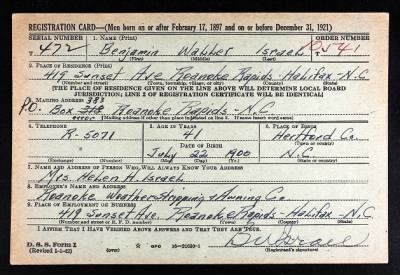 REGISTRATION CARD—(Men born on or after February 17, 1897 and on or before December 31, 1921)
SERIAL NUMBER 1. NAME (Print) ORDER NUMBER
T 472 Benjamin Walker Israel 10541
(First) (Middle) (Last)
2. PLACE OF RESIDENCE (Print)
419 Sunset Ave Roanoke Rapids-Halifax-N.C
(Number and street) (Town, township, village, or city) (County) (State)
[THE PLACE OF RESIDENCE GIVEN ON THE LINE ABOVE WILL DETERMINE LOCAL BOARD
JURISDICTION; LINE 2 OF REGISTRATION CERTIFICATE WILL BE IDENTICAL]
3. MAILING ADDRESS 383
P.O. Box 318 Roanoke Rapids-N.C
[Mailing address if other than place indicated on line 2. If same insert word same]
4. TELEPHONE 5. AGE IN YEARS 6. PLACE OF BIRTH
R-5071 41 Hertford Co.
DATE OF BIRTH (Town or county)
July 22 1900 N.C.
(Exchange) (Number) (Mo.) (Day) (Yr.) (State or country)
7. NAME AND ADDRESS OF PERSON WHO WILL ALWAYS KNOW YOUR ADDRESS
Mrs. Helen H. Israel
8. EMPLOYER'S NAME AND ADDRESS
Roanoke Weather Stripping & Awning Co.
9. PLACE OF EMPLOYMENT OR BUSINESS
419 Sunset Ave. Roanoke Rapids-Halifax-N.C.
(Number and street or R. F. D. number) (Town) (County) (State)
I AFFIRM THAT I HAVE VERIFIED ABOVE ANSWERS AND THAT THEY ARE TRUE.
D. S. S. Form 1
(Revised 1-1-42) GPO 16—21630-1 (Registrant's signature)